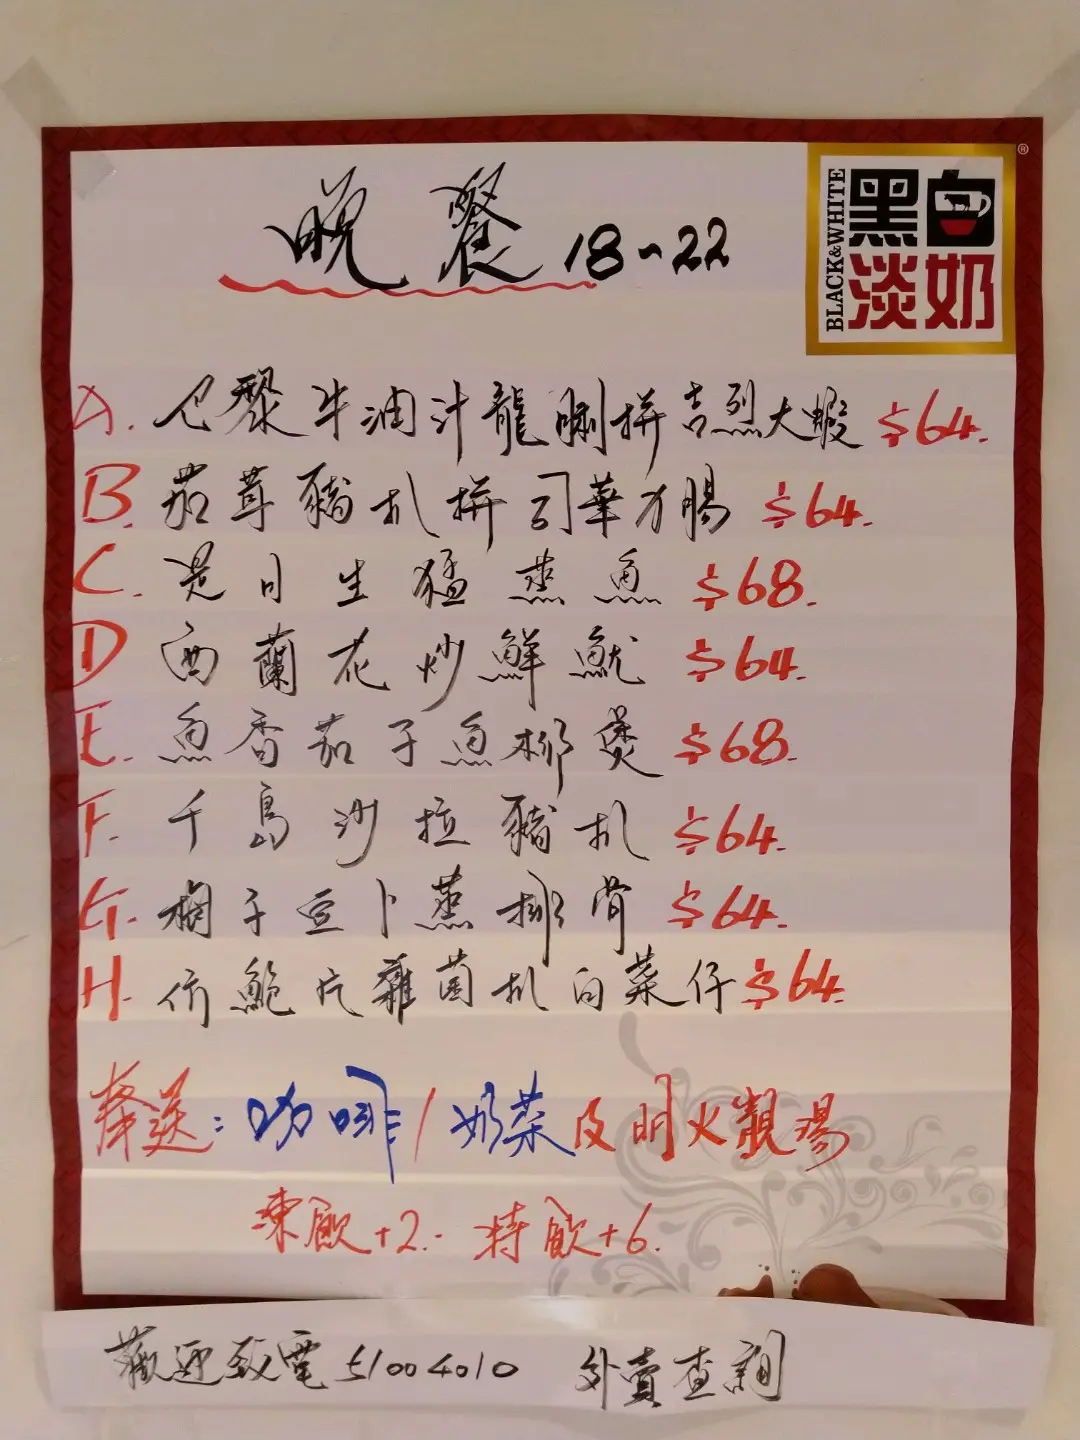 晚餐 18-22
BLACK&WHITE
黑白
淡奶
®
A. 巴黎牛油汁龍脷拼吉烈大蝦 $64.
B. 茄茸豬扒拼司華力腸 $64.
C. 是日生猛蒸魚 $68.
D 西蘭花炒鮮魷 $64.
E. 魚香茄子魚柳煲 $68.
F. 千島沙拉豬扒 $64.
G. 欖子豆卜蒸排骨 $64.
H. 仿鮑片雜菌扒白菜仔 $64.
奉送：咖啡/奶茶及明火靚湯
凍飲+2.- 特飲+6.
歡迎致電 51004010 外賣查詢